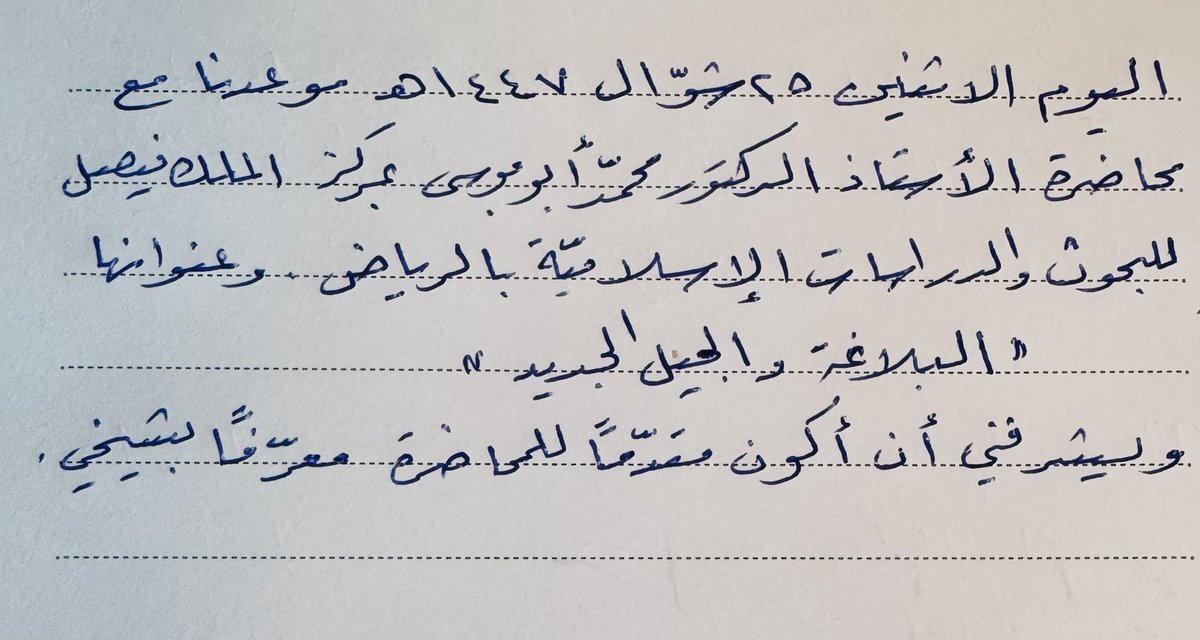 اليوم الاثنين ٢٥ شوّال ١٤٤٧هـ موعدنا مع
محاضرة الأستاذ الدكتور محمّد أبو موسى بمركز الملك فيصل
للبحوث والدراسات الإسلاميّة بالرياض. وعنوانها
" البلاغة والجيل الجديد "
ويشرفني أن أكون مقدّمًا للمحاضرة معرّفًا بشيخي.